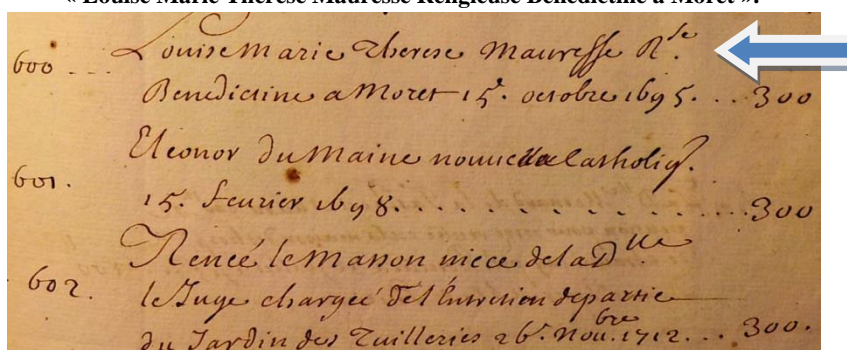 « Louise Marie Thérèse Mauresse Religieuse Bénédictine à Moret ».
600 ... Louise marie Therese Mauresse R.se
Benedictine a Moret 15.e octobre 1695. .. 300
601. Eleonor du Maine nouuelle Catholiq.
15. feurier 1698. . . . . . . . . . . . . 300
602. Renée le Masson niece de la D.lle
le Juge chargée de l'Entretien de partie
du Jardin des Tuilleries 26.e Nou.bre 1712... 300.